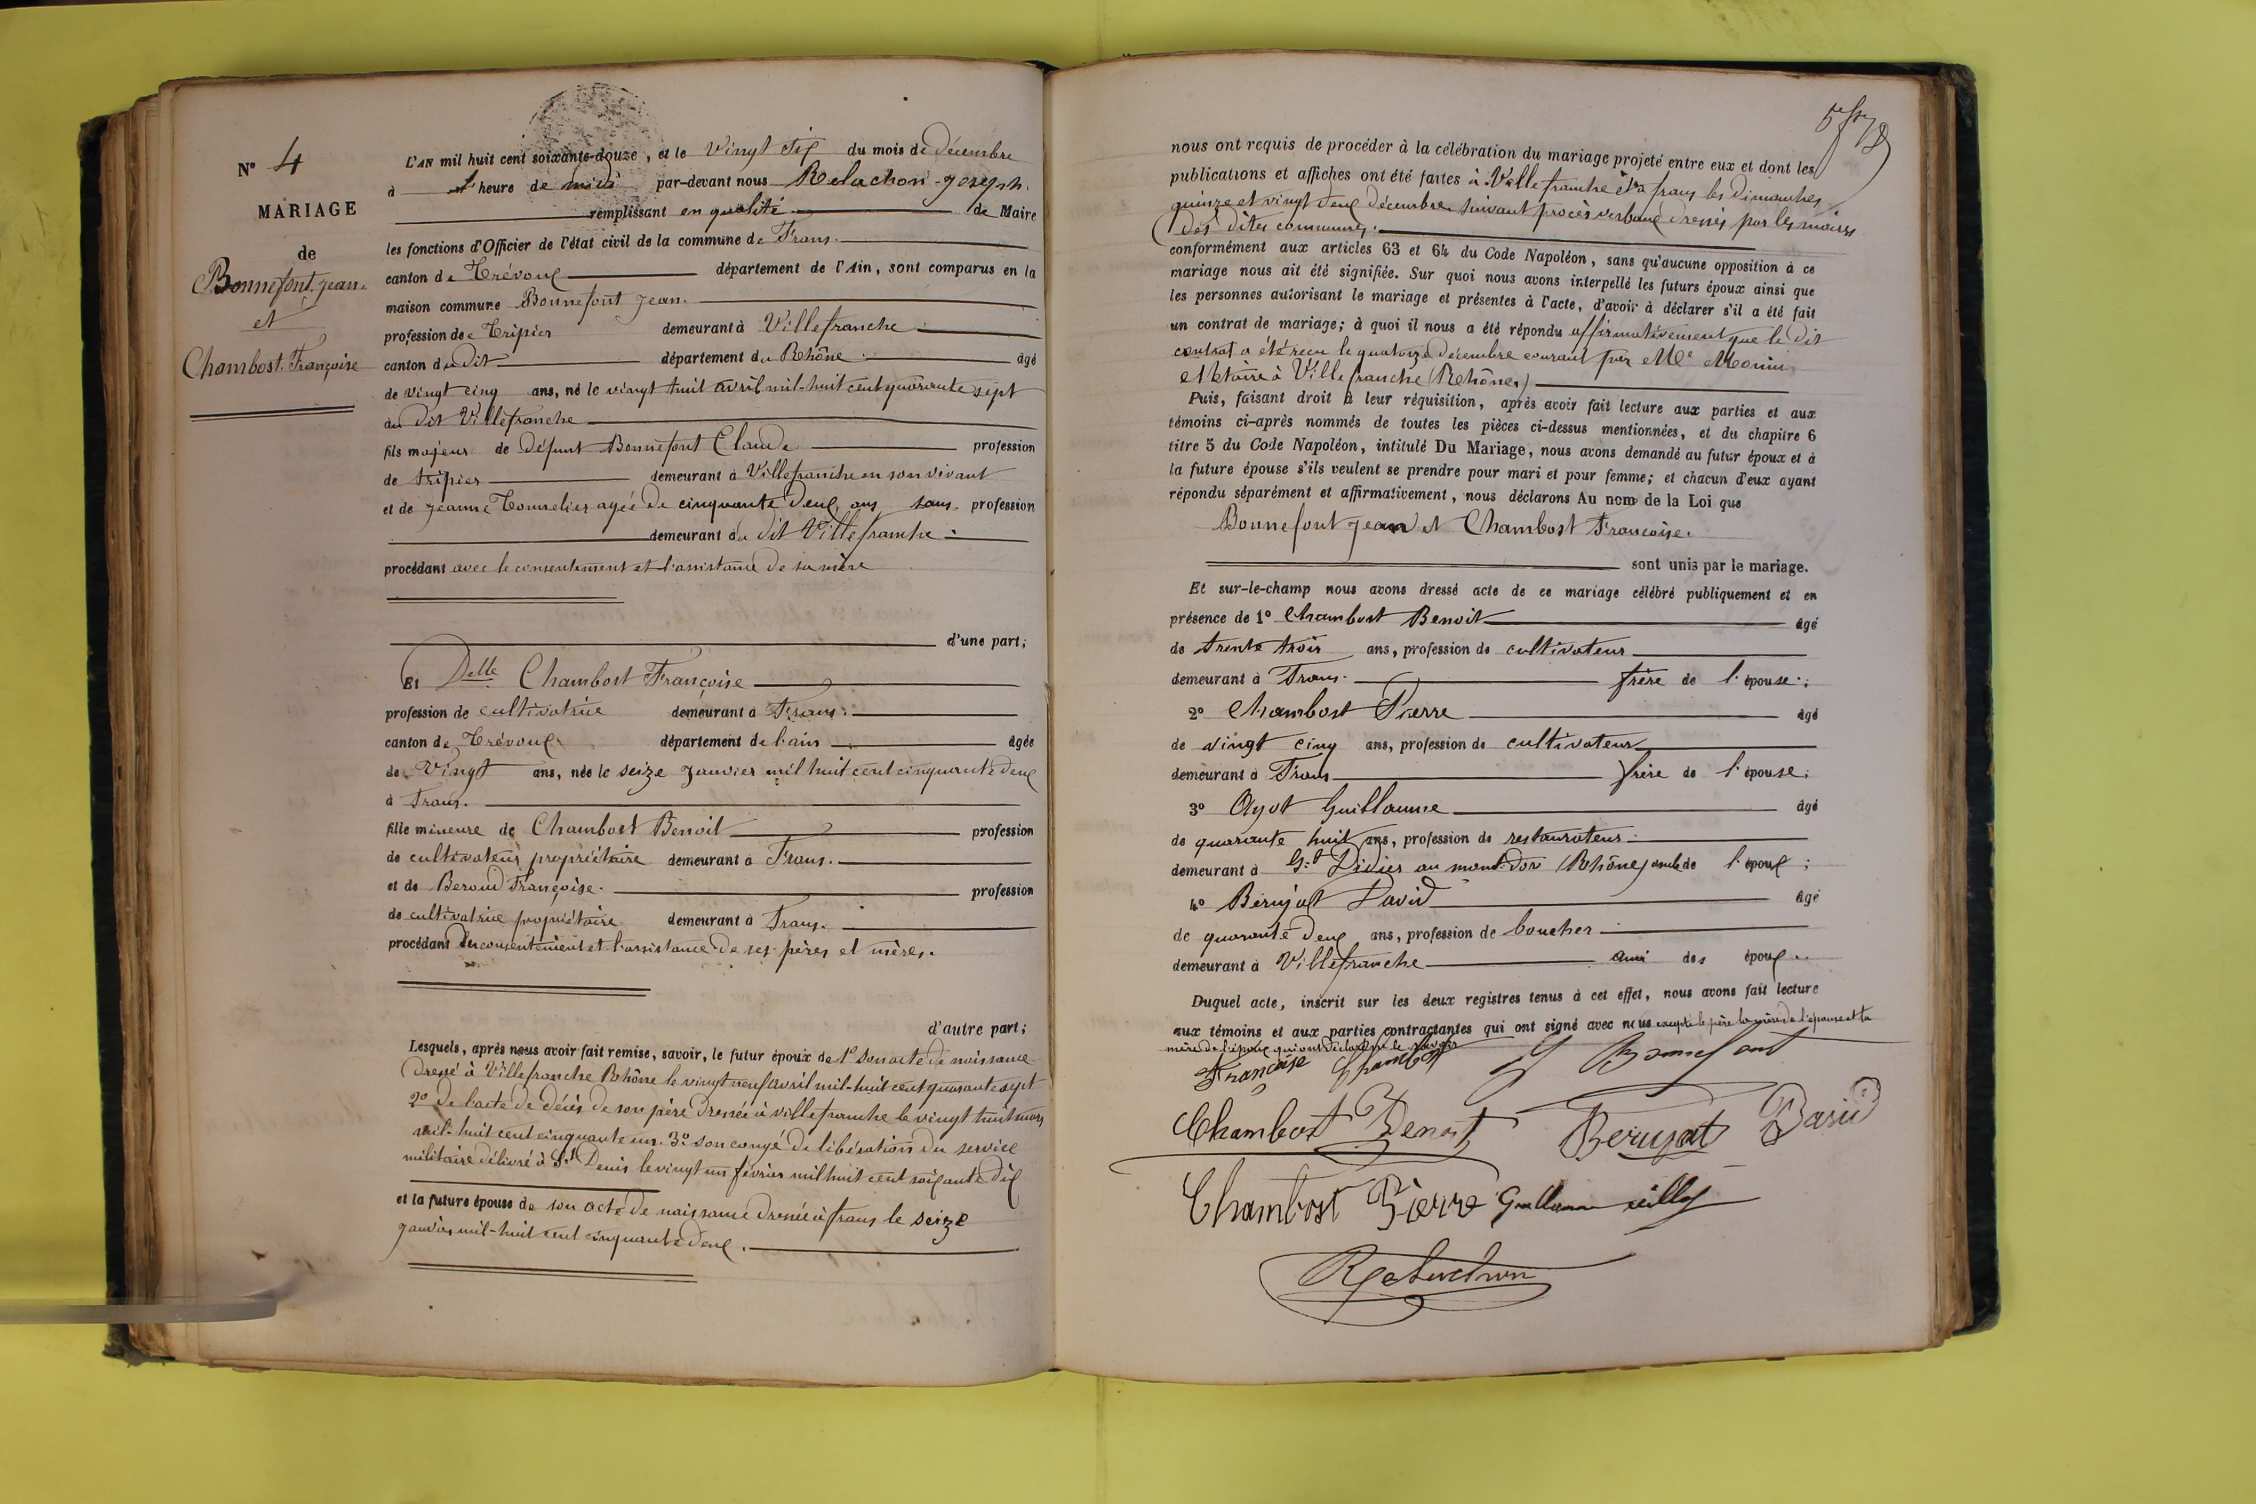 N° 4
MARIAGE
de
Bonnefont Jean
et
Chambost Françoise
L'AN mil huit cent soixante-douze, et le vingt six du mois de décembre
à l'heure de midi par-devant nous Relachon Joseph
remplissant en qualité de Maire
les fonctions d'Officier de l'état civil de la commune de Frans.
canton de Trévoux département de l'Ain, sont comparus en la
maison commune Bonnefont Jean.
profession de Tripier demeurant à Villefranche
canton du dit département du Rhône âgé
de vingt cinq ans, né le vingt huit avril mil-huit cent quarante sept
au dit Villefranche
fils majeur de défunt Bonnefont Claude profession
de tripier demeurant à Villefranche en son vivant
et de Jeanne Tournelier agée de cinquante deux ans sans profession
demeurant au dit Villefranche
procédant avec le consentement et l'assistance de sa mère
d'une part;
Et Delle Chambost Françoise
profession de cultivatrice demeurant à Frans.
canton de Trévoux département de l'ain âgée
de Vingt ans, née le seize Janvier mil huit cent cinquante deux
à Frans.
fille mineure de Chambost Benoit profession
de cultivateur propriétaire demeurant à Frans.
et de Beroud Françoise. profession
de cultivatrice propriétaire demeurant à Frans.
procédant du consentement et l'assistance de ses pères et mères.
d'autre part;
Lesquels, après nous avoir fait remise, savoir, le futur époux de 1° son acte de naissance
dressé à Villefranche Rhône le vingt neuf avril mil-huit cent quarante sept
2° De l'acte de décès de son père dressé à villefranche le vingt huit mars
mil-huit cent cinquante un. 3° son congé de libération du service
militaire délivré à St Denis le vingt un février mil huit cent soixante dix
et la future épouse de son acte de naissance dressé à frans le seize
janvier mil-huit cent cinquante deux.
nous ont requis de procéder à la célébration du mariage projeté entre eux et dont les
publications et affiches ont été faites à Villefranche et à frans les dimanches
quinze et vingt deux décembre suivant procès verbaux dressés par les maires
des dites communes.
conformément aux articles 63 et 64 du Code Napoléon, sans qu'aucune opposition à ce
mariage nous ait été signifiée. Sur quoi nous avons interpellé les futurs époux ainsi que
les personnes autorisant le mariage et présentes à l'acte, d'avoir à déclarer s'il a été fait
un contrat de mariage; à quoi il nous a été répondu affirmativement que le dit
contrat a été recu le quatorze décembre courant par Me
Notaire à Villefranche (Rhône)
Puis, faisant droit à leur réquisition, après avoir fait lecture aux parties et aux
témoins ci-après nommés de toutes les pièces ci-dessus mentionnées, et du chapitre 6
titre 5 du Code Napoléon, intitulé Du Mariage, nous avons demandé au futur époux et à
la future épouse s'ils veulent se prendre pour mari et pour femme; et chacun d'eux ayant
répondu séparément et affirmativement, nous déclarons Au nom de la Loi que
Bonnefont Jean et Chambost Françoise.
sont unis par le mariage.
Et sur-le-champ nous avons dressé acte de ce mariage célébré publiquement et en
présence de 1° Chambost Benoit âgé
de trente trois ans, profession de cultivateur
demeurant à Frans. frère de l'épouse;
2° Chambost Pierre âgé
de vingt cinq ans, profession de cultivateur
demeurant à Frans frère de l'épouse;
3° Guillaume âgé
de quarante huit ans, profession de restaurateur
demeurant à St Didier au mont-d'or (Rhône) oncle de l'époux;
4° Berujat David âgé
de quarante deux ans, profession de boucher
demeurant à Villefranche ami des époux
Duquel acte, inscrit sur les deux registres tenus à cet effet, nous avons fait lecture
aux témoins et aux parties contractantes qui ont signé avec nous excepté le père la mère de l'épouse et la
mère de l'époux qui ont déclaré ne le savoir
Françoise Chambost J Bonnefont
Chambost Benoit Berujat David
Chambost Pierre Guillaume
Relachon